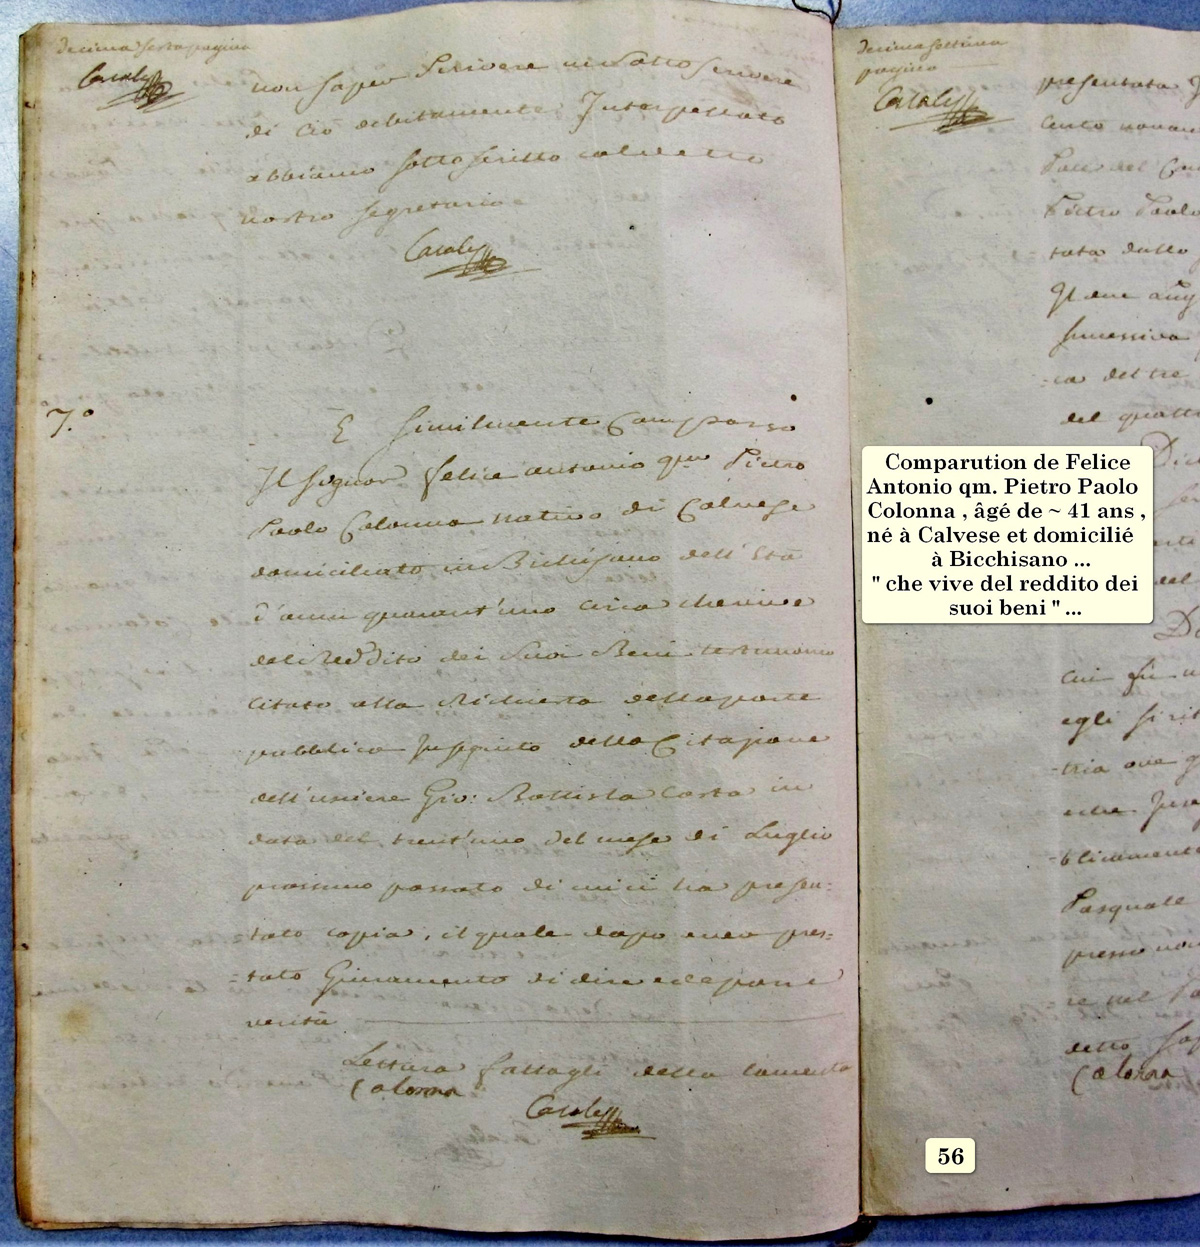 decima sesta pagina
Casale
non saper scrivere ne sottoscrivere
di ciò debitamente Interpellato
abbiamo sottoscritto col detto
nostro segretario
Casale
7.º
E similmente Comparso
Il Signor felice antonio qm Pietro
Paolo Colonna nativo di Calvese
domiciliato in Bichisano dell'età
d'anni quarant'uno circa che vive
del Reddito dei Suoi Beni testimonio
Citato alla Richiesta della parte
pubblica In seguito della Citazione
dell'usciere Gio: Battista Costa in
data del trent'uno del mese di Luglio
prossimo passato di cui ci ha presen:
tato copia, il quale dopo aver pres:
:tato Giuramento di dire e deporre
verità
Lettura fattagli della lamenta
Colonna
Casale
decima settima
pagina
Casale
presentata
cento novan
Pietro Paolo
tata dallo
successiva
:ca del tre
del quatt
cui fu
egli si rit
:tria ove
:blicamente
Pasquale
presso
:re nel
detto
Colonna
Comparution de Felice
Antonio qm. Pietro Paolo
Colonna , âgé de ~ 41 ans ,
né à Calvese et domicilié
à Bicchisano ...
" che vive del reddito dei
suoi beni " ...
56